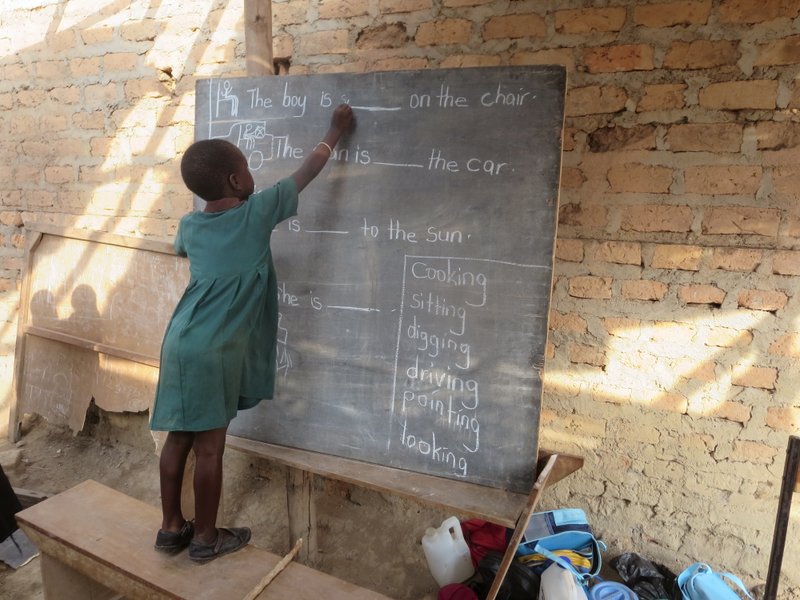 The boy is s_____ on the chair.
The is _____ the car.
is _____ to the sun.
She is _____.
Cooking
sitting
digging
driving
pointing
looking